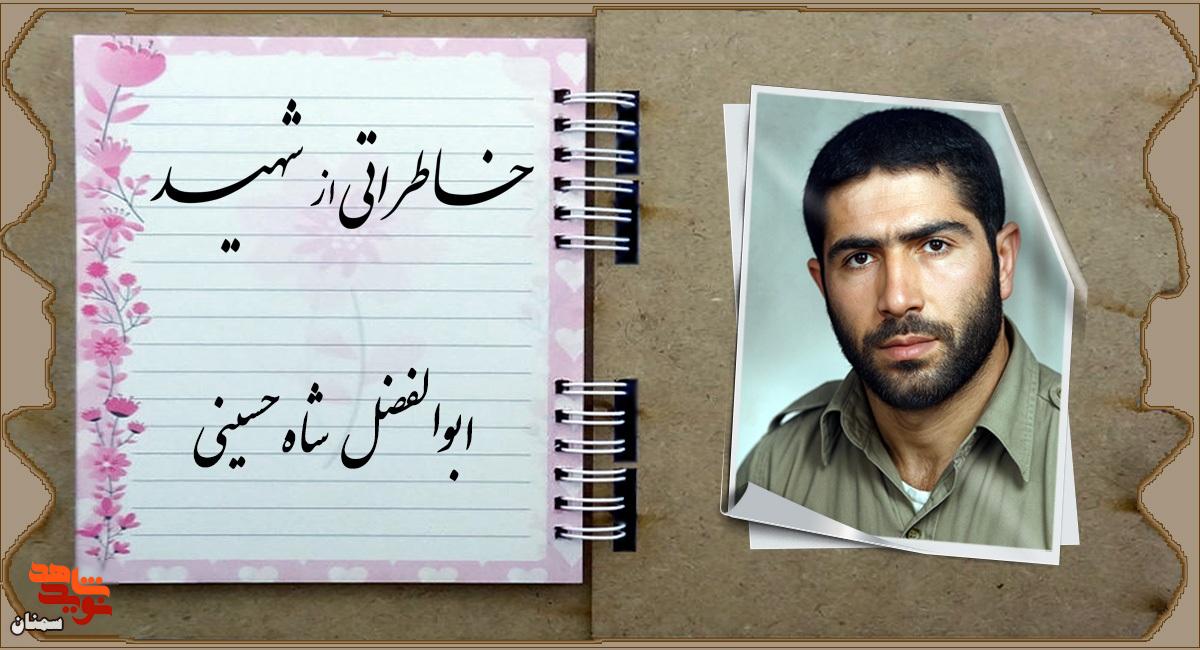 خاطراتی از شهید
ابوالفضل شاه حسینی
نوید شاهد
سمنان